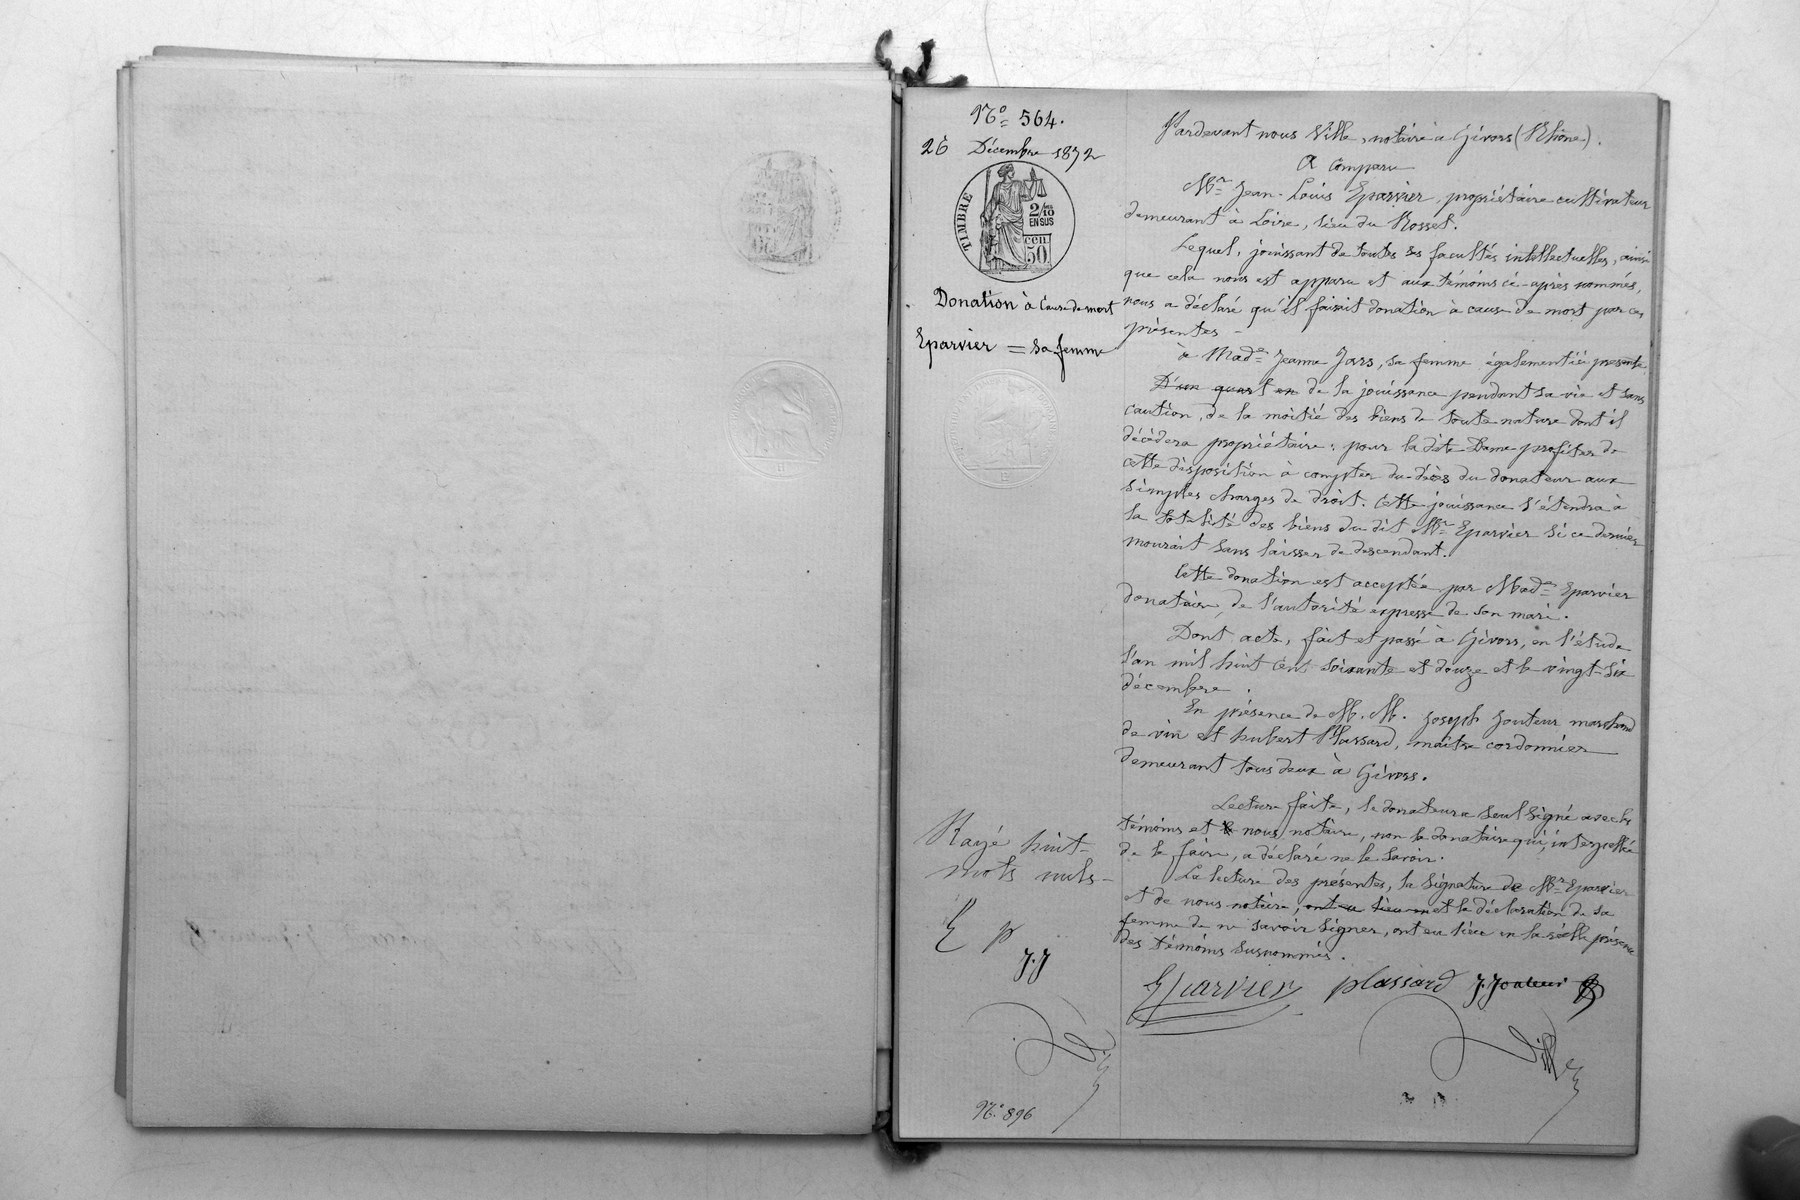 N° 564.
26 Décembre 1872
TIMBRE
2/10
EN SUS
CEN.
50
Donation à Cause de mort
Eparvier = sa femme
Pardevant nous Ville, notaire à Givors (Rhône).
A Comparu
Mr. Jean-Louis Eparvier, propriétaire cultivateur
demeurant à Loire, lieu du Rosset.
Lequel, jouissant de toutes ses facultés intellectuelles, ainsi
que cela nous est apparu et aux témoins ci-après nommés,
nous a déclaré qu'il faisait donation à cause de mort par ces
présentes -
à Made. Jeanne Jars, sa femme également ici présente
D'un quart en de la jouissance pendant sa vie et sans
caution, de la moitié des biens de toute nature dont il
décèdera propriétaire ; pour la dite Dame profiter de
cette disposition à compter du décès du donateur aux
simples charges de droit. Cette jouissance s'étendra à
la totalité des biens du dit Mr. Eparvier si ce dernier
mourait sans laisser de descendant.
Cette donation est acceptée par Made. Eparvier
donataire, de l'autorité expresse de son mari.
Dont acte, fait et passé à Givors, en l'étude
l'an mil huit cent soixante et douze et le vingt-six
décembre.
En présence de M. M. Joseph Jouteur marchand
de vin et hubert Plassard, maître cordonnier
demeurant tous deux à Givors.
Lecture faite, le donateur a seul signé avec les
témoins et nous notaire, non la donataire qui, interpellée
de le faire, a déclaré ne le savoir.
La lecture des présentes, la signature de Mr. Eparvier
et de nous notaire, ont eu lieu en et la déclaration de sa
femme de ne savoir signer, ont eu lieu en la réelle présence
des témoins susnommés.
Rayé huit
mots nuls -
E p
J.J
Eparvier plassard J. Jouteur
Ville
N° 896